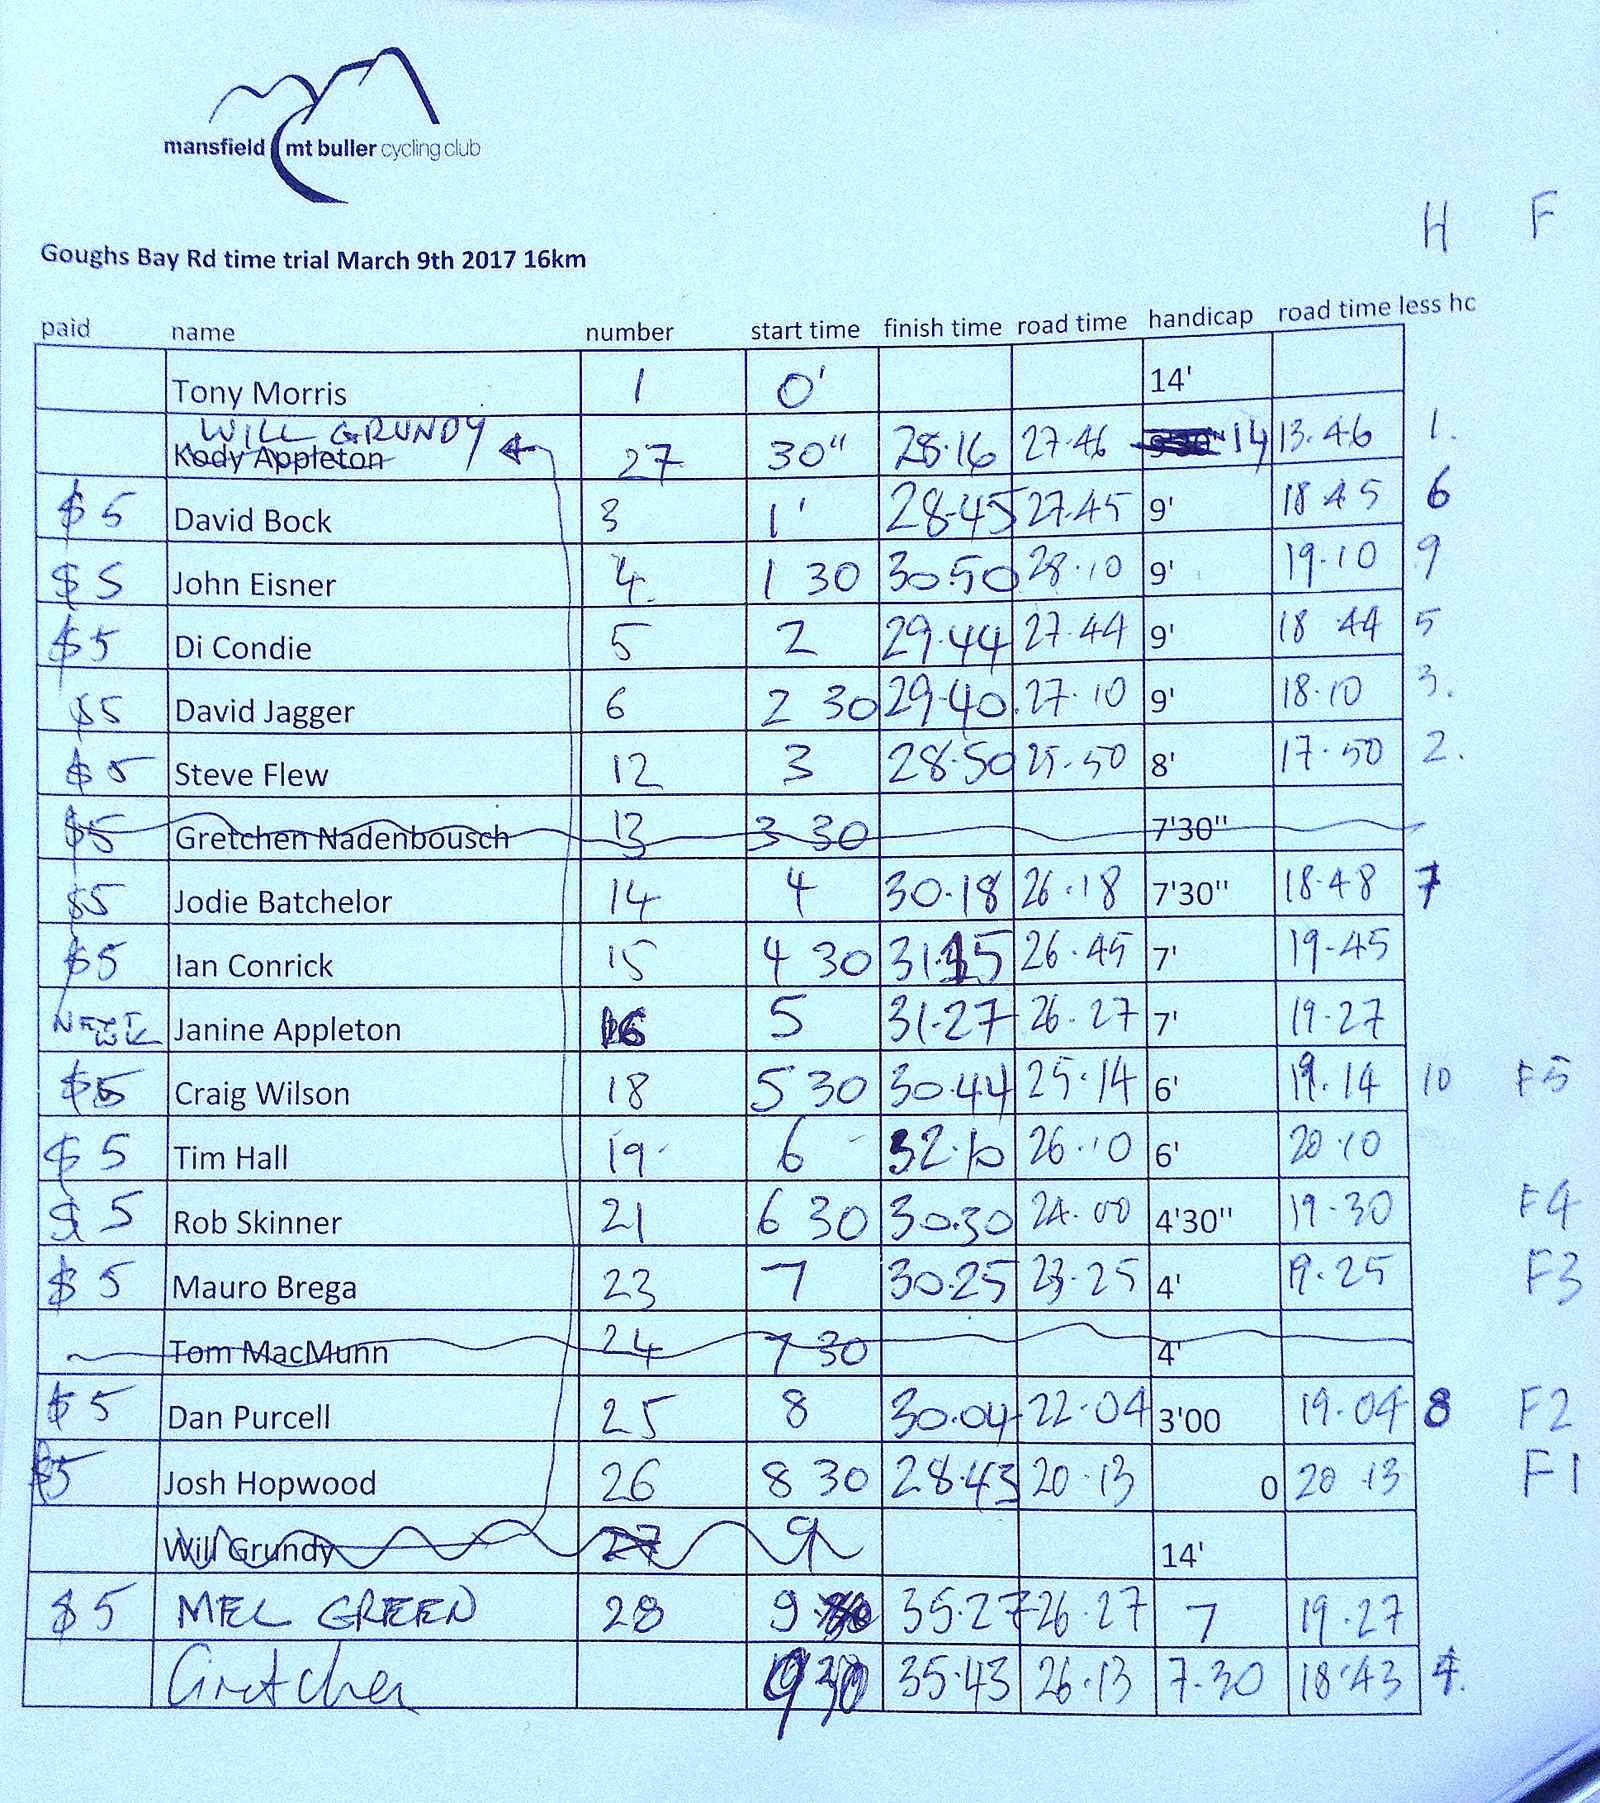 mansfield mt buller cycling club
H F
Goughs Bay Rd time trial March 9th 2017 16km
paid name number start time finish time road time handicap road time less hc
Tony Morris 1 0' 14'
WILL GRUNDY
Kody Appleton 27 30" 28.16 27.46 9'30" 14 13.46 1.
$5 David Bock 3 1' 28.45 27.45 9' 18 45 6
$5 John Eisner 4 1 30 30.50 28.10 9' 19.10 9
$5 Di Condie 5 2 29.44 27.44 9' 18 44 5
$5 David Jagger 6 2 30 29.40 27.10 9' 18.10 3.
$5 Steve Flew 12 3 28.50 25.50 8' 17.50 2.
$5 Gretchen Nadenbousch 13 3 30 7'30"
$5 Jodie Batchelor 14 4 30.18 26.18 7'30" 18.48 7
$5 Ian Conrick 15 4 30 31.15 26.45 7' 19-45
NEXT WK Janine Appleton 16 5 31.27 26.27 7' 19.27
$5 Craig Wilson 18 5 30 30.44 25.14 6' 19.14 10 F5
$5 Tim Hall 19 6 32.10 26.10 6' 20.10
$5 Rob Skinner 21 6 30 30.30 24.00 4'30" 19-30 F4
$5 Mauro Brega 23 7 30.25 23.25 4' 19.25 F3
Tom MacMunn 24 7 30 4'
$5 Dan Purcell 25 8 30.04 22.04 3'00 19.04 8 F2
$5 Josh Hopwood 26 8 30 28.43 20.13 0 20 13 F1
Will Grundy 27 9 14'
$5 MEL GREEN 28 9 35.27 26.27 7 19.27
Gretchen 9 30 35.43 26.13 7.30 18.43 4.